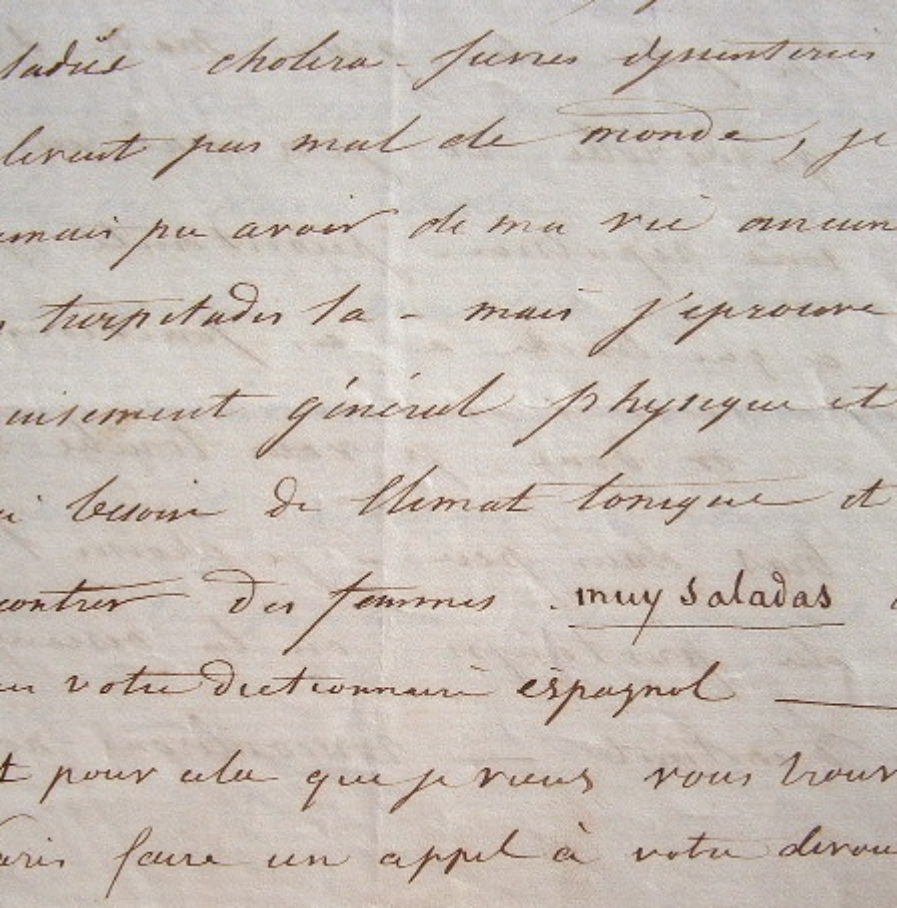 ladies cholera - fievres dysenteries
levent pas mal de monde, je
mais pu avoir de ma vie aucun
s turpitudes la - mais j'eprouve
uisement général physique et
i besoin de Climat tonique et
contrer des femmes muy saladas
votre dictionnaire éspagnol
t pour cela que je viens vous trouv
aris faire un appel à votre devou